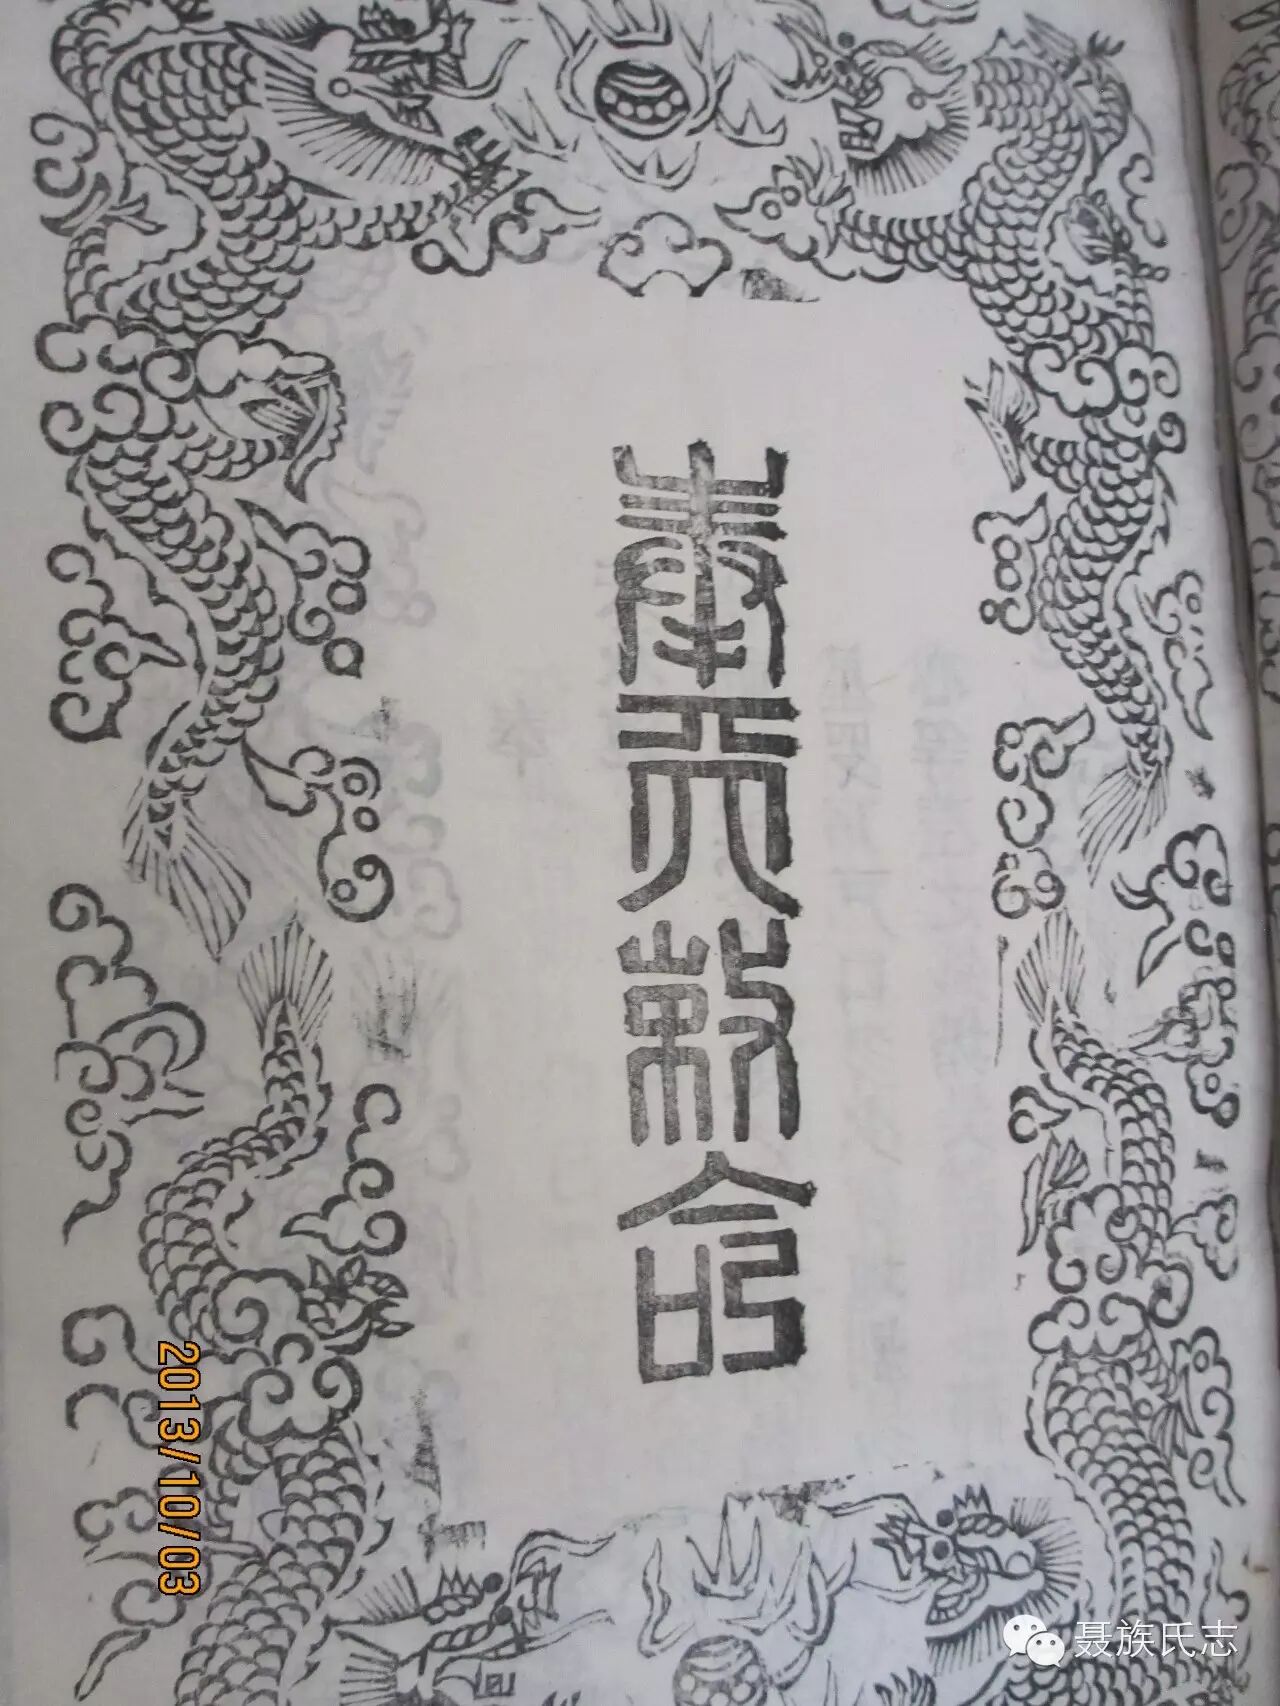 奉天敕命
2013/10/03
聂族氏志